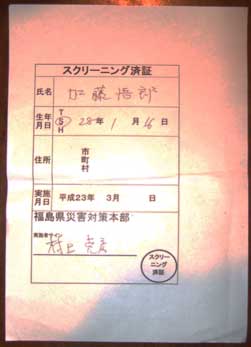 スクリーニング済証
氏名 加藤悟郎
生年月日 T S H 28年1月16日
住所 市町村
実施月日 平成23年 3月 日
福島県災害対策本部
実施者サイン
村上
スクリーニング済証